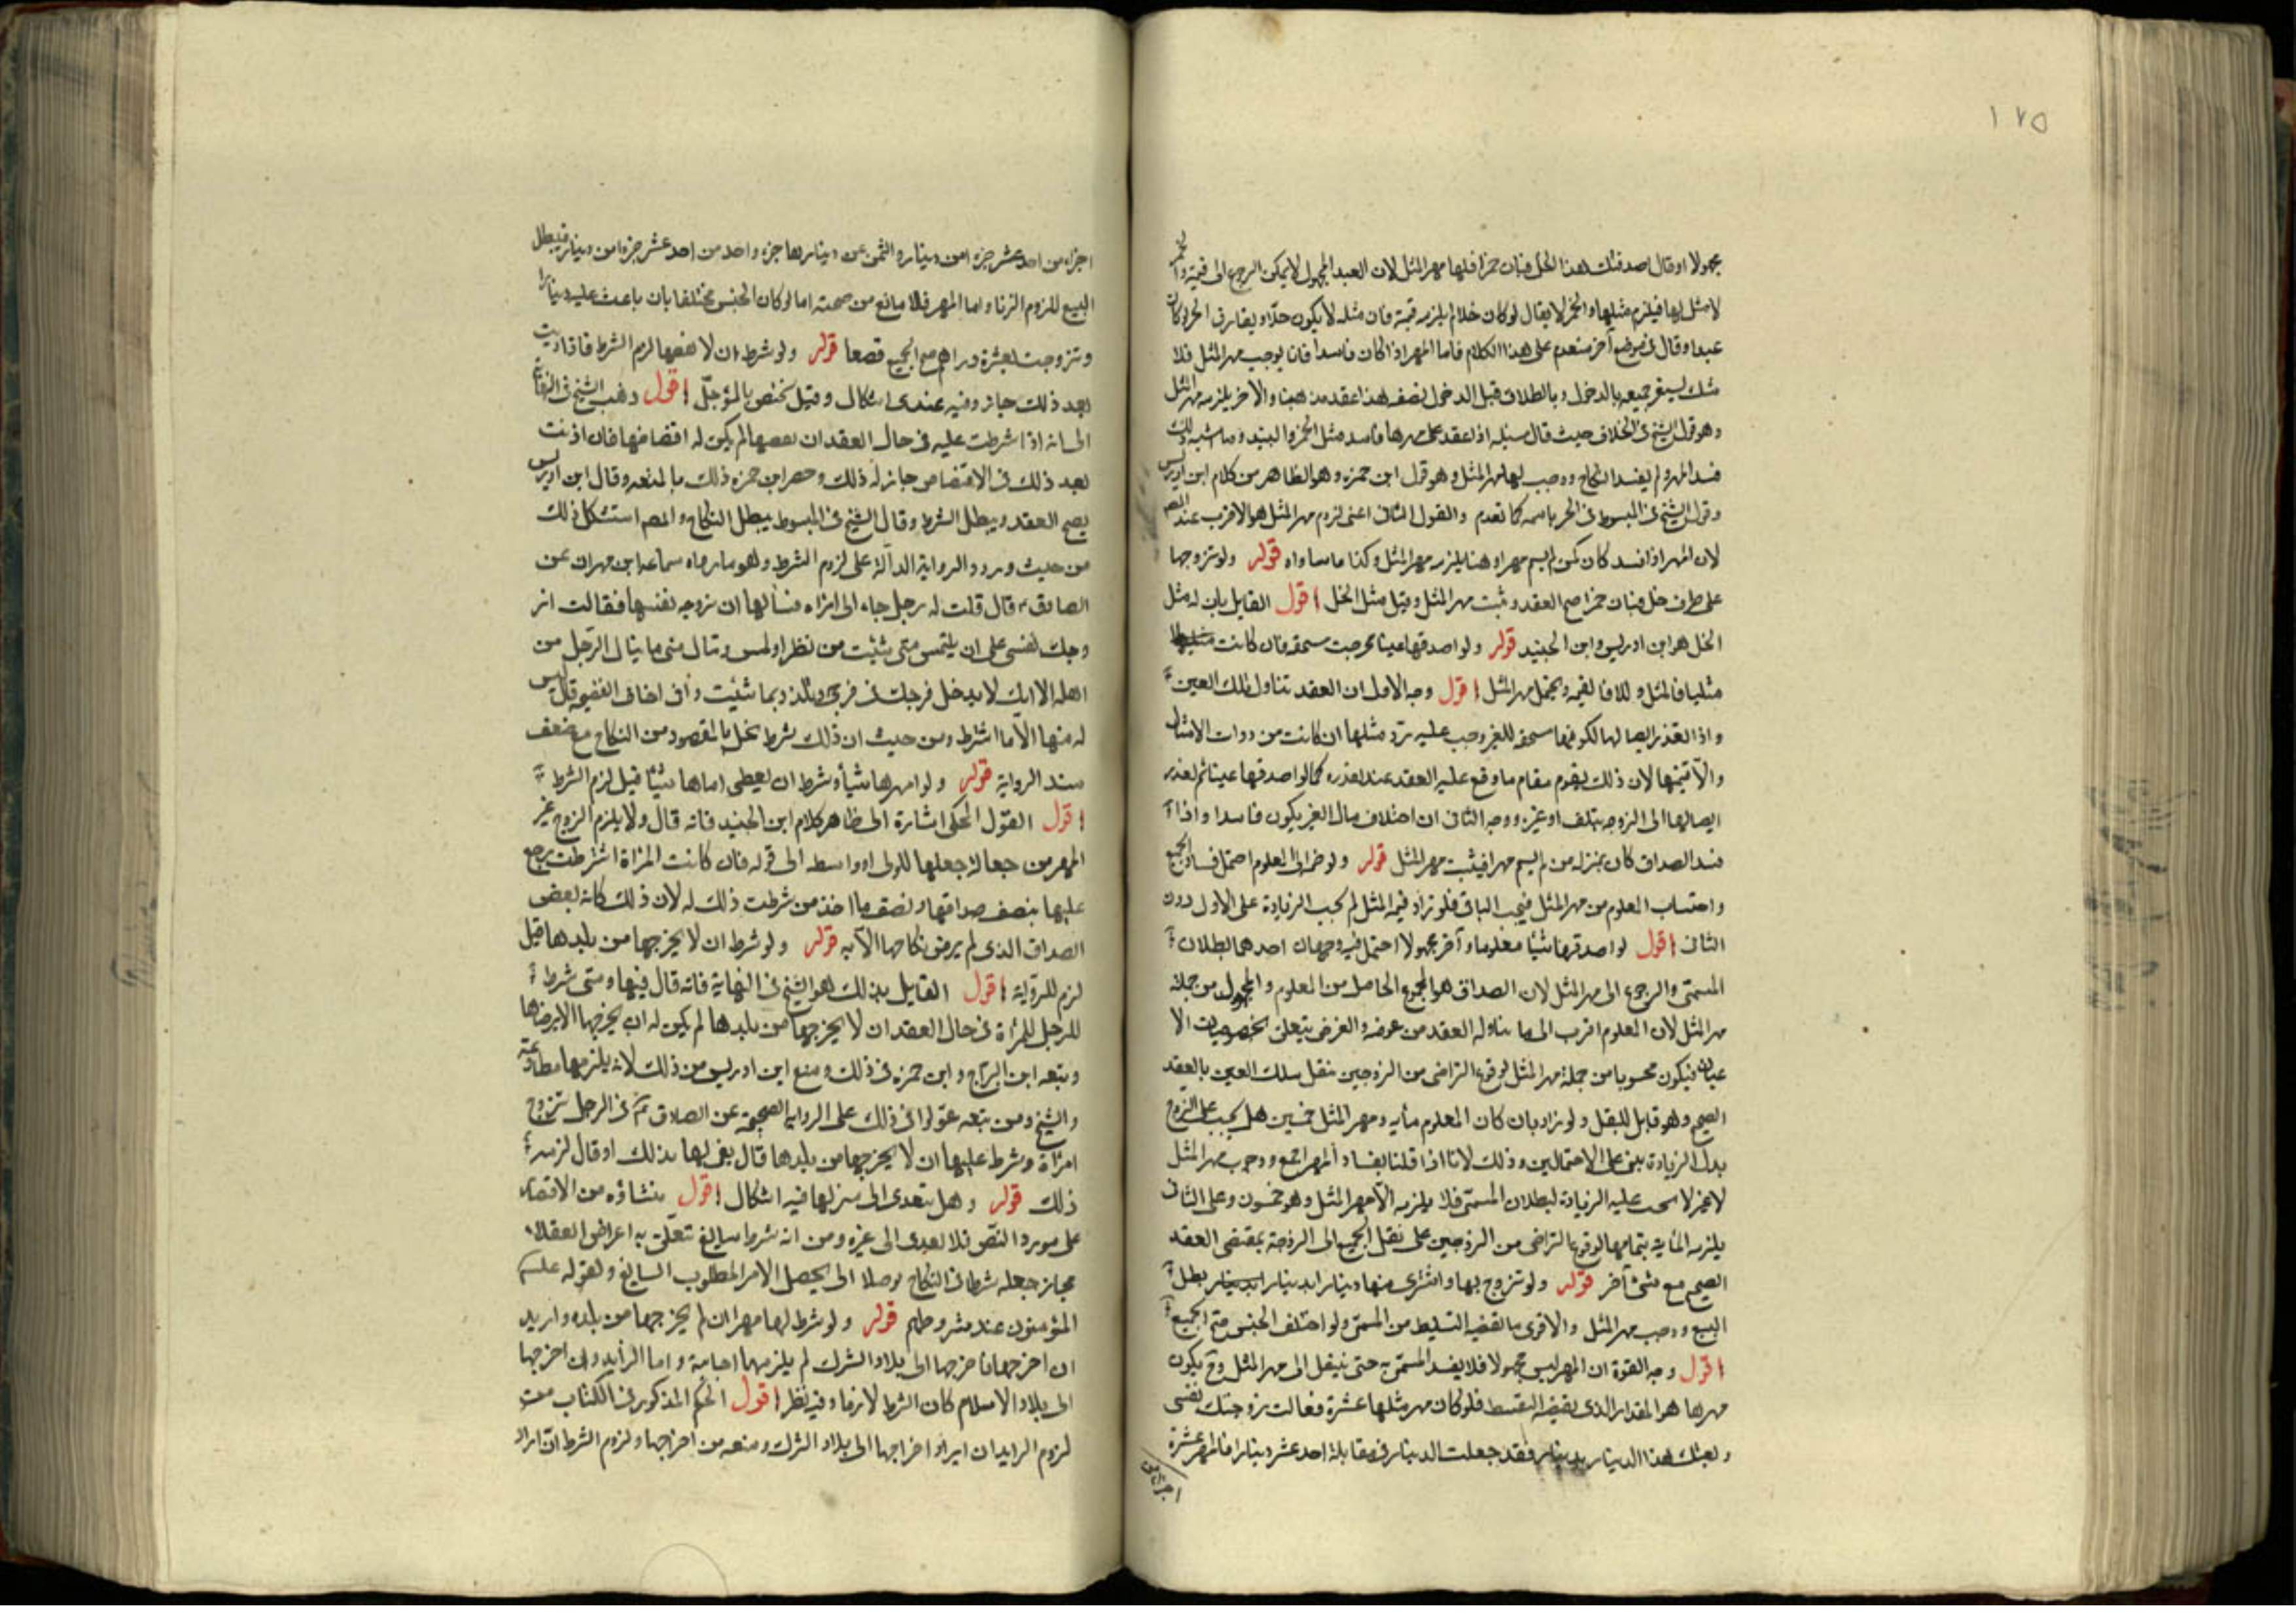 ١٢٥
مجهولا او قال اصدقتك هذا الخل فبان خمرا فلها مهر المثل لان العبد المجهول لا يمكن الرجوع الى قيمته والخمر
لا مثل لها فيلزم مثلها والحر لا يقال لو كان خلا لم يلزمه قيمة فان مثله لا يكون حلا ويفارق الحر لو كان
عبدا وقال في موضع آخر متقدم على هذا الكلام فاما المهر اذا كان فاسدا فانا نوجب مهر المثل فلا
شك يستقر جميعه بالدخول وبالطلاق قبل الدخول نصفه هذا عقد مذهبنا والاخر يلزمه مهر المثل
وهو قول الشيخ في الخلاف حيث قال مسئلة اذا عقد على مهر فاسد مثل الخمر والنبيذ وما اشبه ذلك
فسد المهر ولم يفسد النكاح ووجب لها مهر المثل وهو قول ابن حمزه وهو الظاهر من كلام ابن ادريس
وقول الشيخ في المبسوط في الحر باسمه كما تقدم والقول الثاني اعنى لزوم مهر المثل هو الاقرب عند المصم
لان المهر اذا فسد كان كمن لم يسم مهرا وهنا يلزمه مهر المثل وكذا ما ساواه قوله ولو تزوجها
على ظرف خل فبان خمرا صح العقد وثبت مهر المثل وقيل مثل الخل اقول القايل بان له مثل
الخل هو ابن ادريس وابن الجنيد قوله ولو اصدقها عينا فخرجت مستحقه فان كانت
مثليا فالمثل والا فالقيمه ويحتمل مهر المثل اقول وجه الاول ان العقد تناول تلك العين
واذا تعذر ايصالها لكونها مستحقه للغير وجب عليه رد مثلها ان كانت من ذوات الامثال
والا قيمتها لان ذلك يقوم مقام ما وقع عليه العقد عند تعذره كما لو اصدقها عينا ثم تعذر
ايصالها الى الزوجه بتلف او غيره ووجه الثاني ان اصداق مال الغير يكون فاسدا واذا
فسد الصداق كان بمنزله من لم يسم مهرا فيثبت مهر المثل قوله ولو ضم الى المعلوم احتمل فساد الجميع
واحتساب المعلوم من مهر المثل فيجب الباقى فلو زاد قيمة المثل لم تجب الزيادة على الاول دون
الثاني اقول لو اصدقها شيئا معلوما وآخر مجهولا احتمل فيه وجهان احدهما بطلان
المسمى والرجوع الى مهر المثل لان الصداق هو المجموع الحاصل من المعلوم والمجهول من جملة
مهر المثل لان المعلوم اقرب الى ما تناوله العقد من عوضه والغرض يتعلق بخصوصيات الا
عيان فيكون محسوبا من جملة مهر المثل لوقوع التراضى من الزوجين بنقل تلك العين بالعقد
الصحيح وهو قابل للنقل ولو زاد بان كان المعلوم مأيه ومهر المثل خمسين هل يجب على الزوج
بدل الزيادة يبنى على الاحتمالين وذلك لانا اذا قلنا بفساد المهر اجمع ووجوب مهر المثل
لا غير لا تجب عليه الزيادة لبطلان المسمى فلا يلزمه الا مهر المثل وهو خمسون وعلى الثاني
يلزمه المأية بتمامها لوقوع التراضى من الزوجين على نقل الجميع الى الزوجة بمقتضى العقد
الصحيح مع شئ آخر قوله ولو تزوج بها واشترى منها دينارا بدينار بطل
البيع ووجب مهر المثل والاقوى ما تقتضيه التقسيط من المسمى ولو اختلف الجنس صح الجميع
اقول وجه القوة ان المهر ليس مجهولا فلا يفسد المسمى به حتى ينتقل الى مهر المثل وح يكون
مهرها هو المقدار الذى يقتضيه التقسيط فلو كان مهر مثلها عشرة فقالت زوجتك نفسى
وبعتك هذا الدينار بدينار فقد جعلت الدينار في مقابلة احد عشر دينارا فالمهر عشرة
اجزاء من
اجزاء من احد عشر جزءا من دينار والثمن عن دينارها جزء واحد من احد عشر جزءا من دينار فيبطل
البيع للزوم الربا واما المهر فلا مانع من صحته اما لو كان الجنس مختلفا بان باعت عليه دينارا
وتزوجت بعشرة دراهم صح الجميع قطعا قوله ولو شرط ان لا يفضها لزم الشرط فاذا اذنت
بعد ذلك جاز وفيه عندى اشكال وقيل يختص بالمؤجل اقول ذهب الشيخ في النهاية
الى انه اذا اشرطت عليه في حال العقد ان لا يفضها لم يكن له اقتضاضها فان اذنت
بعد ذلك في الاقتضاض جاز له ذلك وحصر ابن حمزه ذلك بالمتعه وقال ابن ادريس
يصح العقد ويبطل الشرط وقال الشيخ في المبسوط يبطل النكاح والمصم استشكل ذلك
من حيث ورود الرواية الدالة على لزوم الشرط وهو ما رواه سماعه ابن مهران عن
الصادق ع قال قلت له رجل جاء الى امراة فسألها ان تزوجه نفسها فقالت ازو
وجك نفسى على ان يلتمس متى شئت من نظر او لمس وتنال منى ما ينال الرجل من
اهله الا انك لا تدخل فرجك في فرجى وتلذذ بما شئت فانى اخاف الفضيحة قال ليس
له منها الا ما اشترط ومن حيث ان ذلك شرط يخل بالمقصود من النكاح مع ضعف
سند الرواية قوله ولو امهرها شيأ وشرط ان يعطى اباها شيئا قيل لزم الشرط
اقول القول المحكى اشارة الى ظاهر كلام ابن الجنيد فانه قال ولا يلزم الزوج غير
المهر من جعالة جعلها للولى او واسطه الى قوله فان كانت المرأة اشترطت رجع
عليها بنصف صداقها ونصف ما اخذ من شرطت ذلك له لان ذلك كانه بعض
الصداق الذى لم يرض نكاحها الا به قوله ولو شرط ان لا يخرجها من بلدها قيل
لزم للرواية اقول القايل بذلك هو الشيخ في النهاية فانه قال فيها ومتى شرط
للرجل للمرأة في حال العقد ان لا يخرجها من بلدها لم يكن له ان يخرجها الا برضاها
وتبعه ابن البراج وابن حمزه في ذلك ومنع ابن ادريس من ذلك لانه يلزمها مطاوعته
والشيخ ومن تبعه عولوا في ذلك على الرواية الصحيحة عن الصادق ع في الرجل تزوج
امراة وشرط عليها ان لا يخرجها من بلدها قال يفى لها بذلك او قال لزمه
ذلك قوله وهل يتعدى الى منزلها فيه اشكال اقول منشاؤه من الاقتصار
على مورد النص فلا يعدى الى غيره ومن انه شرط سايغ تتعلق به اغراض العقلاء
فجاز جعله شرطا في النكاح توصلا الى تحصيل الامر المطلوب السايغ ولقوله عليه السلم
المؤمنون عند شروطهم قوله ولو شرط لها مهرا ان لم يخرجها من بلده وازيد
ان اخرجها فاخرجها الى بلاد الشرك لم يلزمها اجابة واما الزايد وان اخرجها
الى بلاد الاسلام كان الشرط لازما وفيه نظر اقول الحكم المذكور في الكتاب من
لزوم الزايد ان اراد اخراجها الى بلاد الشرك ومنعه من اخراجها ولزوم الشرط ان اراد